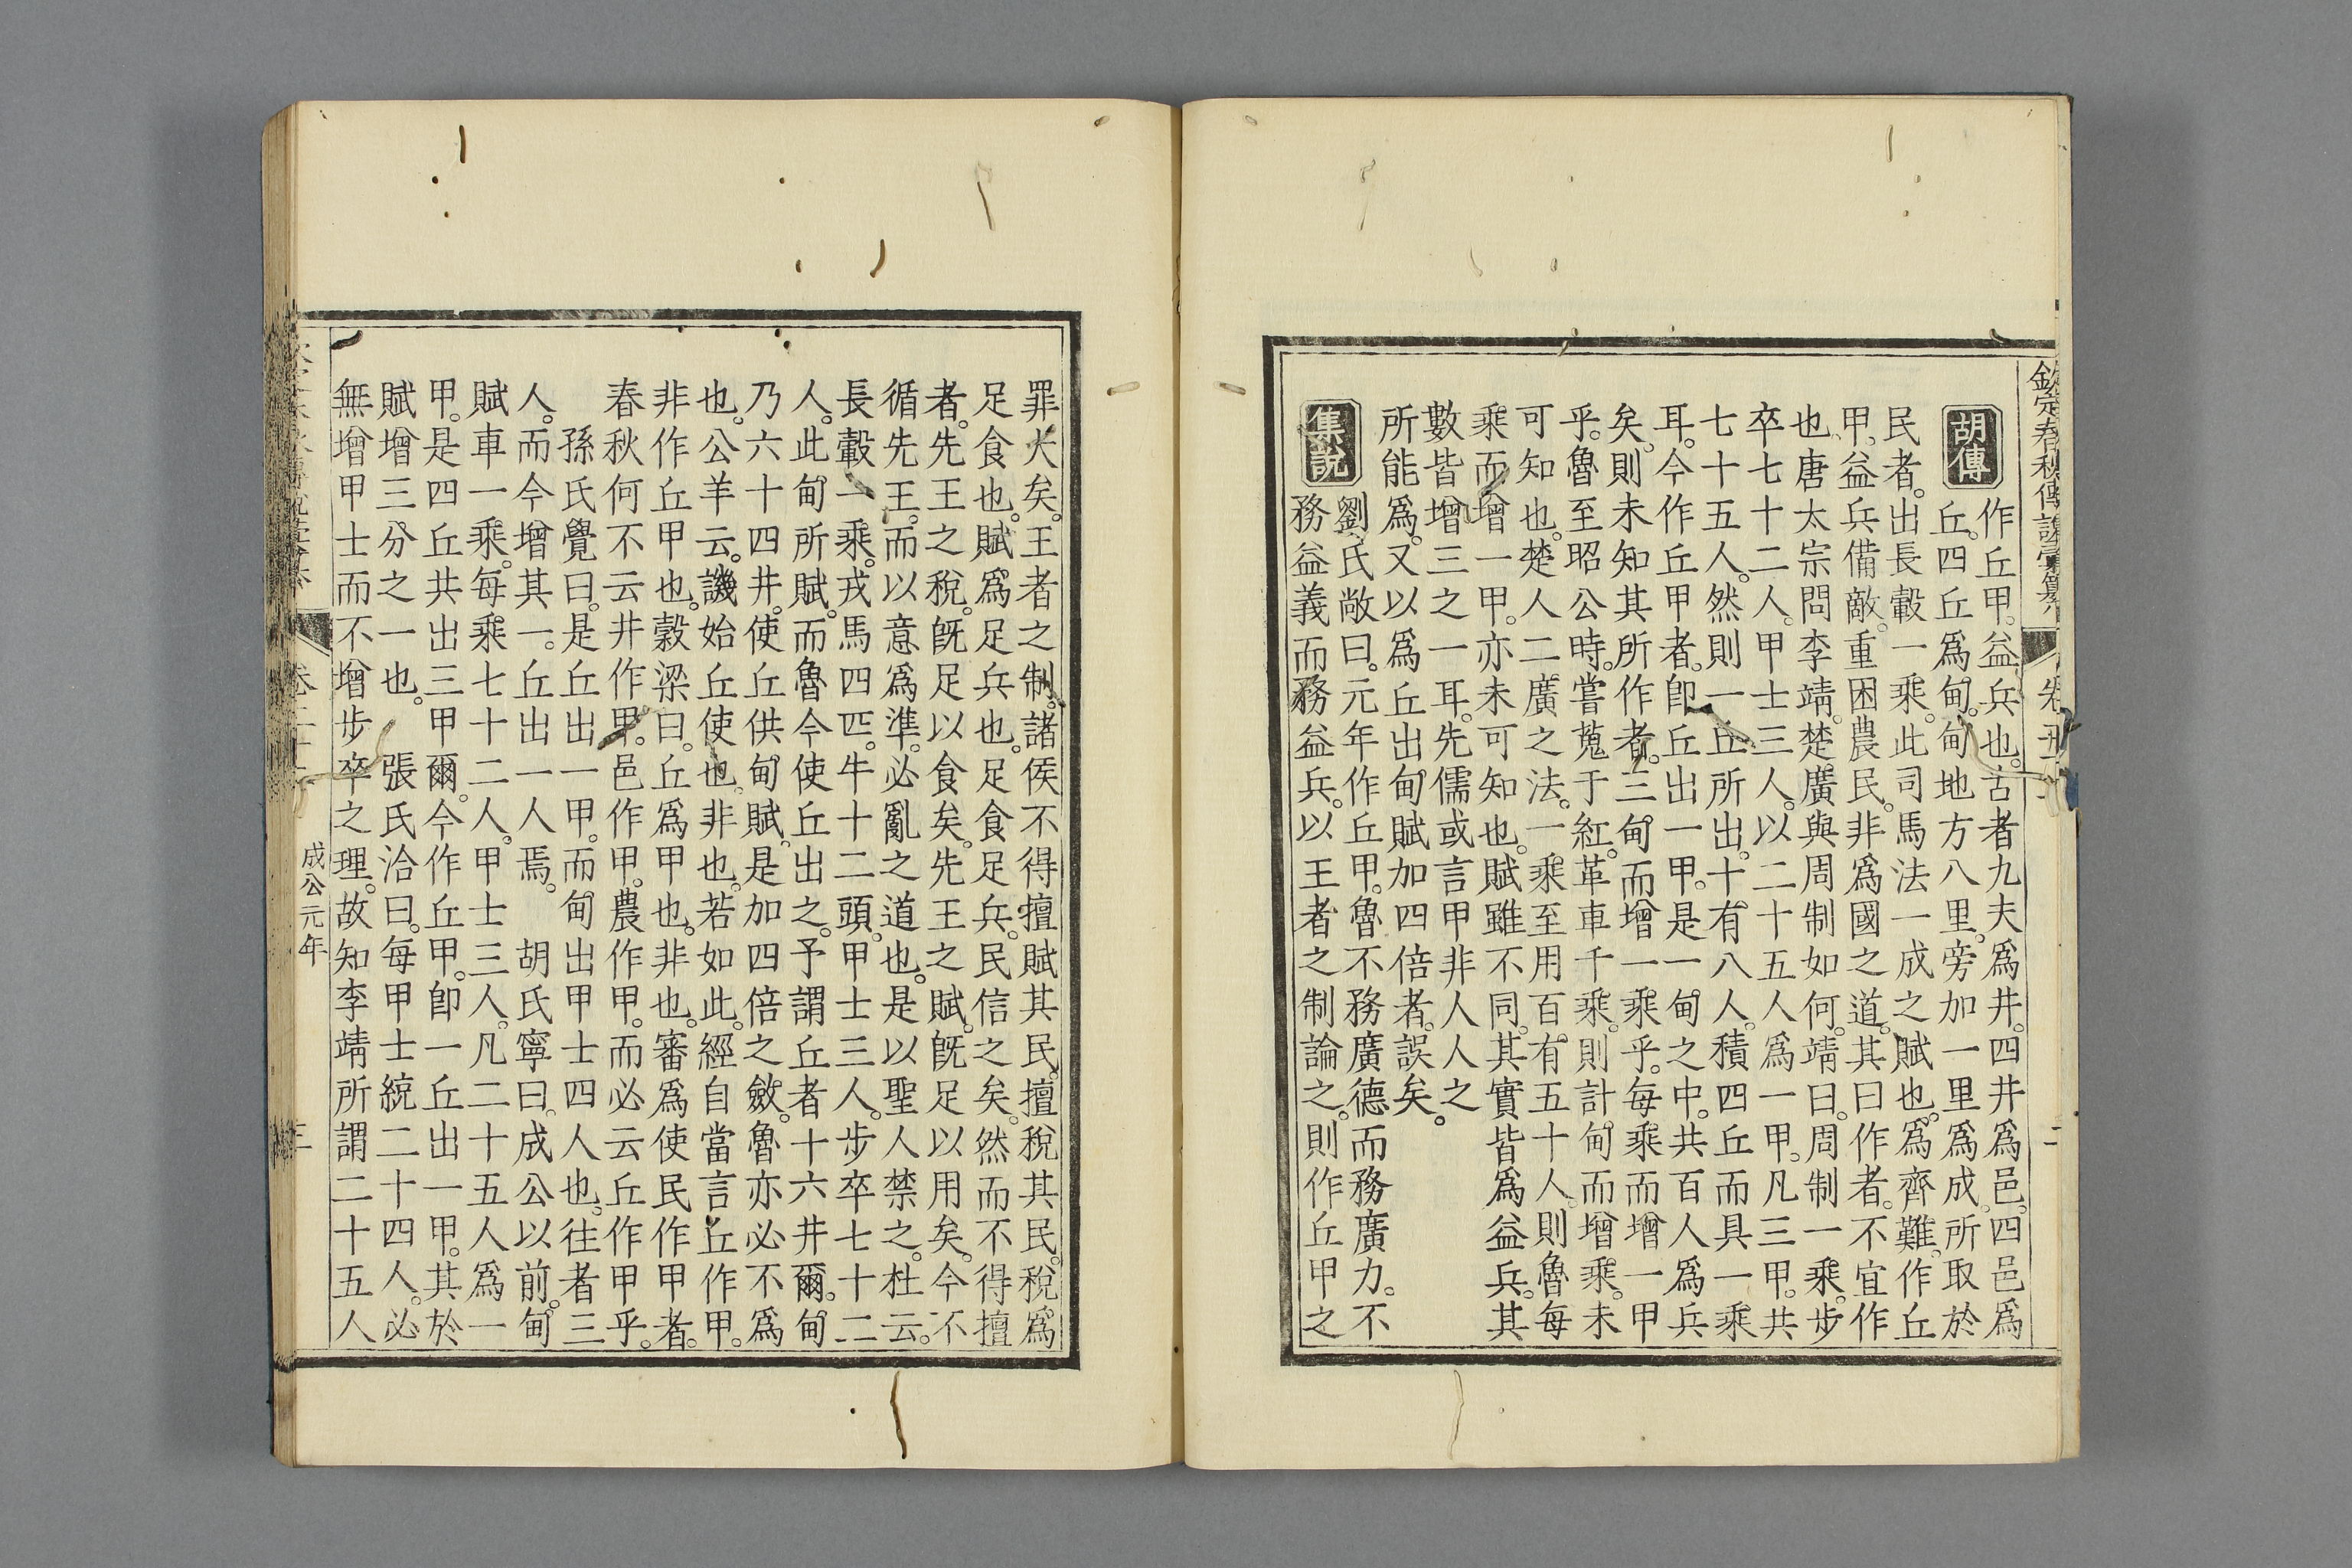 欽定春秋傳說彙纂
胡傳
作丘甲。益兵也。古者九夫爲井。四井爲邑。四邑爲
丘。四丘爲甸。甸地方八里。旁加一里爲成。所取於
民者。出長轂一乘。此司馬法一成之賦也。爲齊難。作丘
甲。益兵備敵。重困農民。非爲國之道。其曰作者。不宜作
也。唐太宗問李靖。楚廣與周制如何。靖曰。周制一乘。步
卒七十二人。甲士三人。以二十五人爲一甲。凡三甲。共
七十五人。然則一丘所出。十有八人。積四丘而具一乘
耳。今作丘甲者。卽丘出一甲。是一甸之中。共百人爲兵
矣。則未知其所作者。三甸而增一乘乎。每乘而增一甲
乎。魯至昭公時。嘗蒐于紅。革車千乘。則計甸而增乘。未
可知也。楚人二廣之法。一乘至用百有五十人。則魯每
乘而增一甲。亦未可知也。賦雖不同。其實皆爲益兵。其
數皆增三之一耳。先儒或言甲非人人之
所能爲。又以爲丘出甸賦加四倍者。誤矣。
集說
劉氏敞曰。元年作丘甲。魯不務廣德。而務廣力。不
務益義而務益兵。以王者之制論之。則作丘甲之
罪大矣。王者之制。諸侯不得擅賦其民。擅稅其民。稅爲
足食也。賦爲足兵也。足食足兵。民信之矣。然而不得擅
者。先王之稅。旣足以食矣。先王之賦。旣足以用矣。今不
循先王。而以意爲準。必亂之道也。是以聖人禁之。杜云。
長轂一乘。戎馬四匹。牛十二頭。甲士三人。步卒七十二
人。此甸所賦。而魯今使丘出之。予謂丘者十六井爾。甸
乃六十四井。使丘供甸賦。是加四倍之斂。魯亦必不爲
也。公羊云。譏始丘使也。非也。若如此。經自當言丘作甲。
非作丘甲也。穀梁曰。丘爲甲也。非也。審爲使民作甲者。
春秋何不云井作甲。邑作甲。農作甲。而必云丘作甲乎。
孫氏覺曰。是丘出一甲。而甸出甲士四人也。往者三
人。而今增其一。丘出一人焉。　胡氏寧曰。成公以前。甸
賦車一乘。每乘七十二人。甲士三人。凡二十五人爲一
甲。是四丘共出三甲爾。今作丘甲。卽一丘出一甲。其於
賦增三分之一也。　張氏洽曰。每甲士統二十四人。必
無增甲士而不增步卒之理。故知李靖所謂二十五人
成公元年